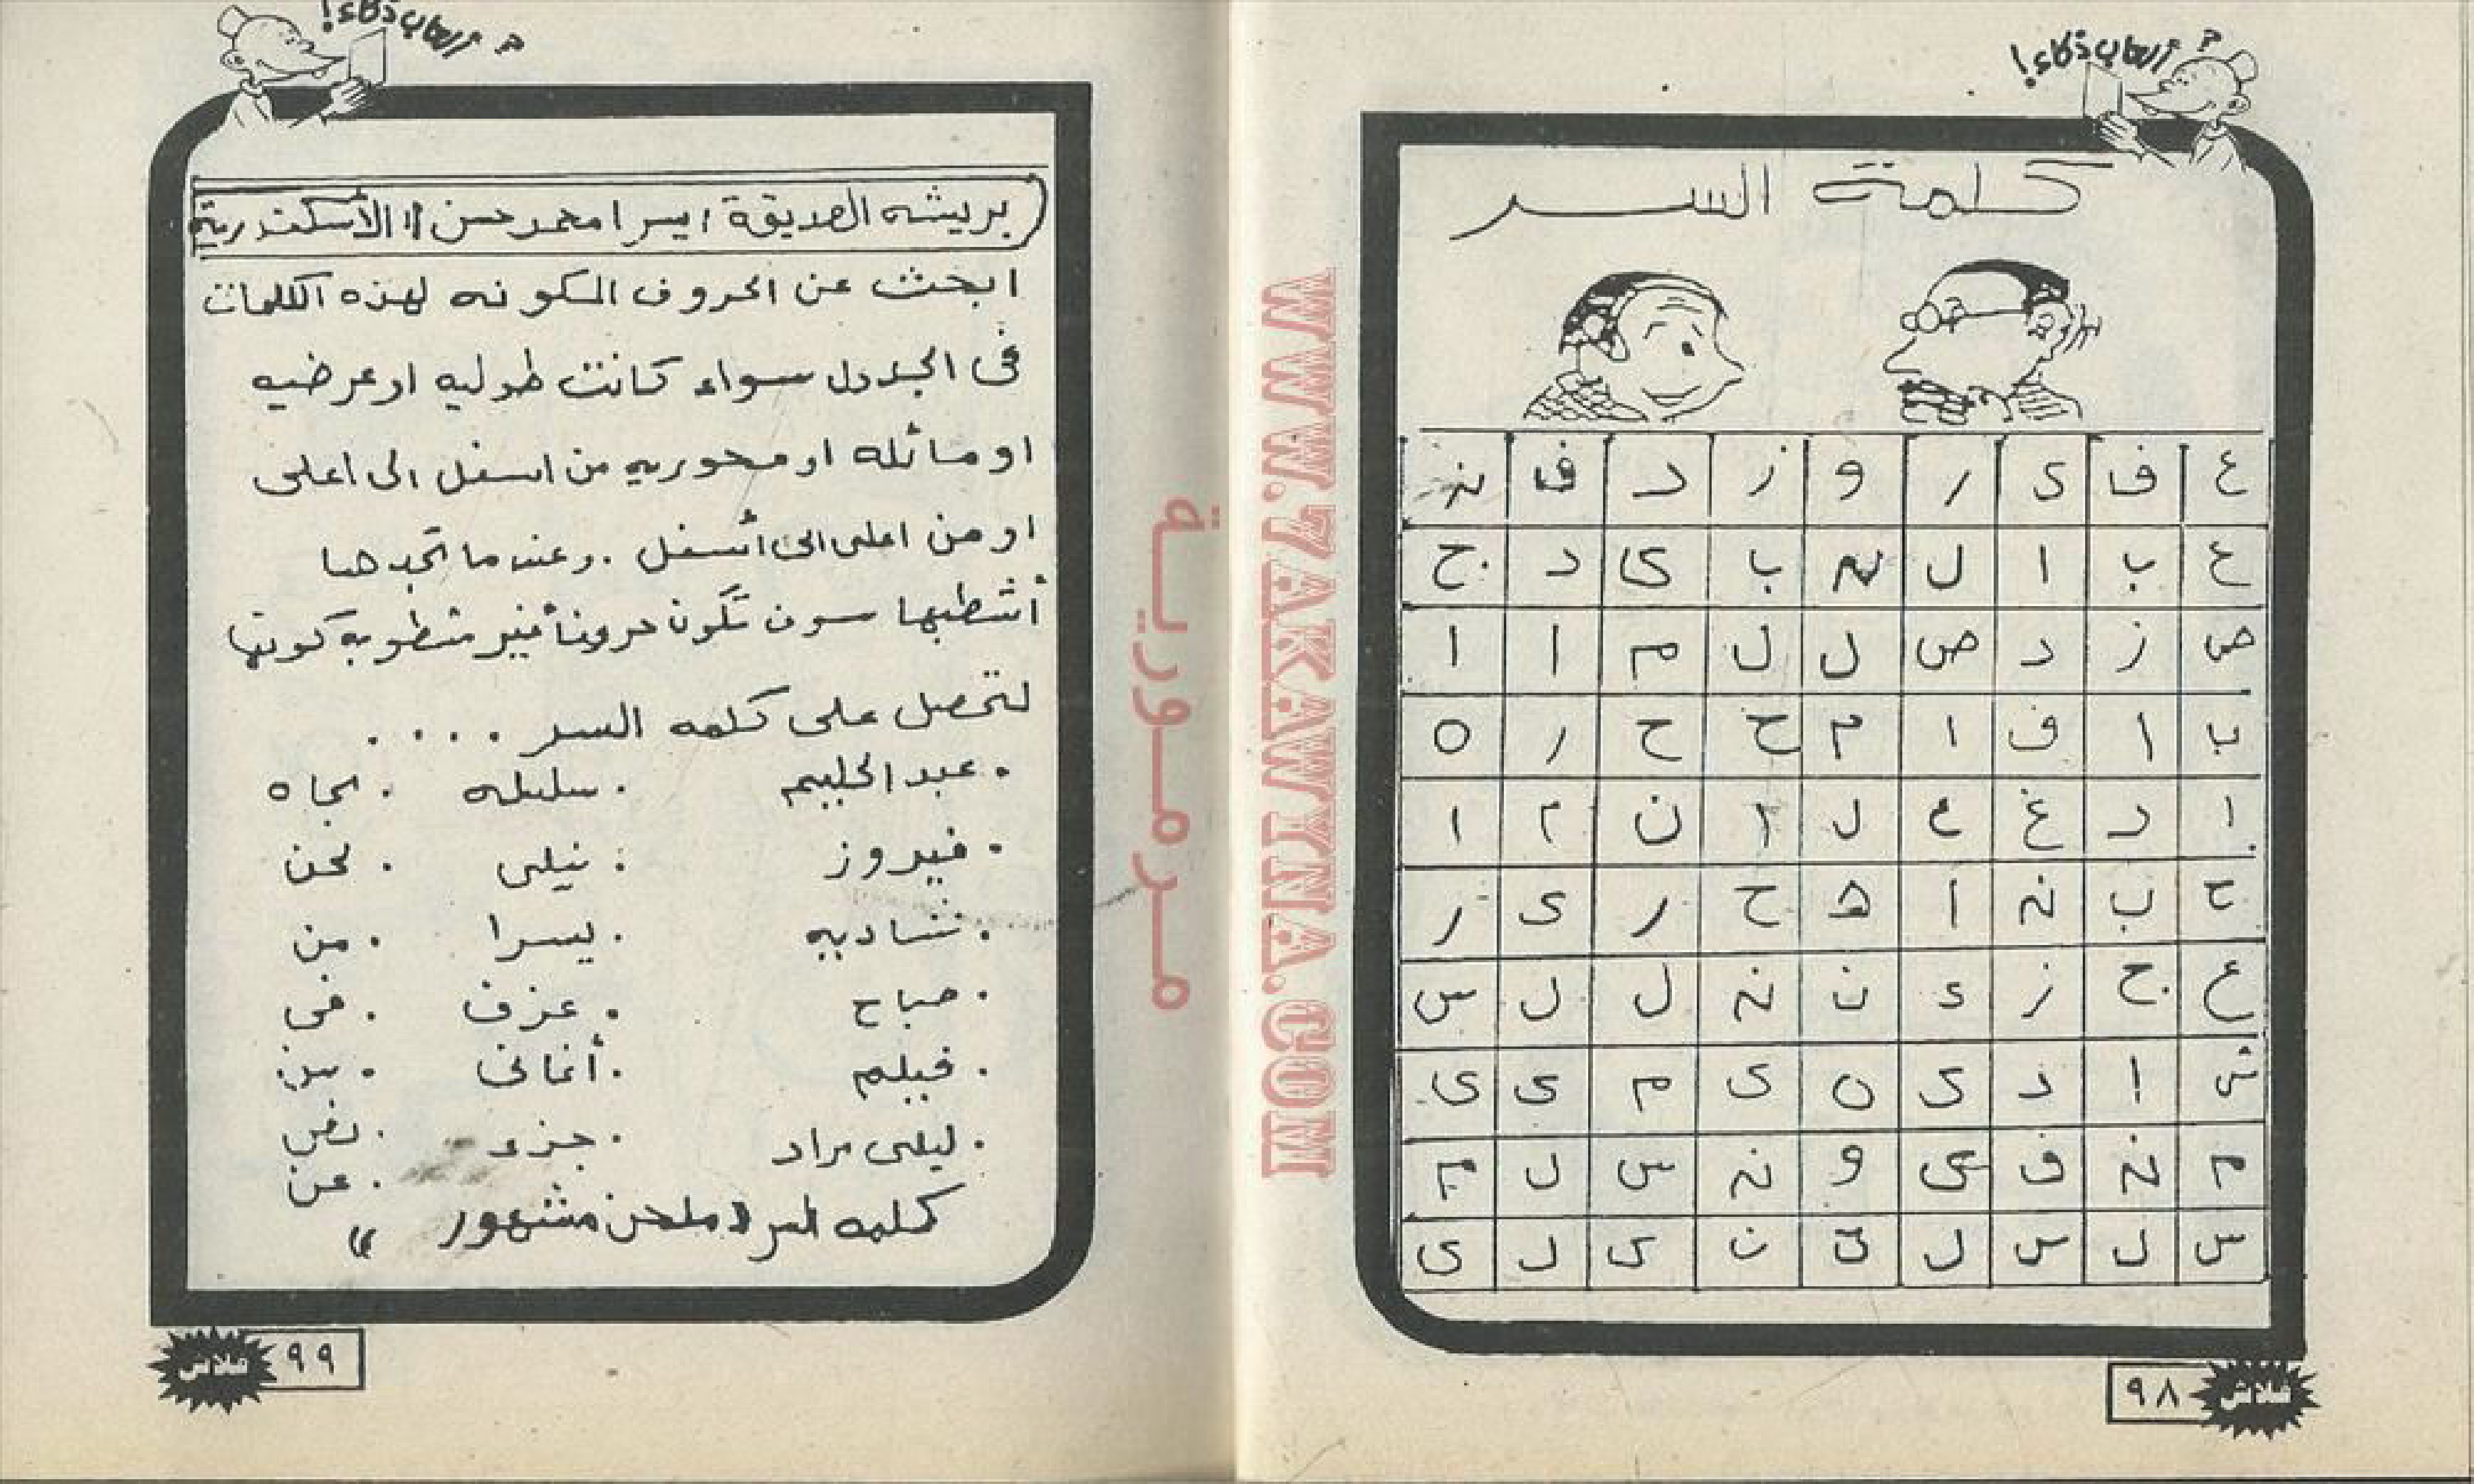 ألعاب ذكاء!؟
كلمة السر
ع ف ى ر و ز د ف ن
ع ب ا ل س ب ى د ج
ص ز د ص ل ل م ا ا
ب ا ف ا م ح ح ر ه
ا د غ ع ل ا ن م ا
ح ب ن ا ه ح ر ى ر
ع ج ز ء ن ن ل ل س
ش ا د ى ه ى م ى ى
م ن ف ى و ن س ل م
س ل س ل ة ن ى ل ى
٩٨
فلاش
ألعاب ذكاء!؟
بريشه الصديقة / يسرا محمد حسن // الأسكندرية
ابحث عن الحروف المكونه لهذه الكلمات
فى الجدول سواء كانت طوليه او عرضيه
او مائله او محوريه من اسفل الى اعلى
او من اعلى الى أسفل . وعندما تجدها
أشطبها سوف تكون حروفا غير مشطوبة كونها
لتحصل على كلمه السر ....
. عبد الحليم . سلسله . نجاه
. فيروز . نيلى . لحن
. شاديه . يسرا . من
. صباح . عزف . فى
. فيلم . أغانى . بين
. ليلى مراد . جزء . نفس
. عن
كلمه السر « ملحن مشهور »
٩٩
فلاش
مرمورية
WWW.7AKAWENA.COM